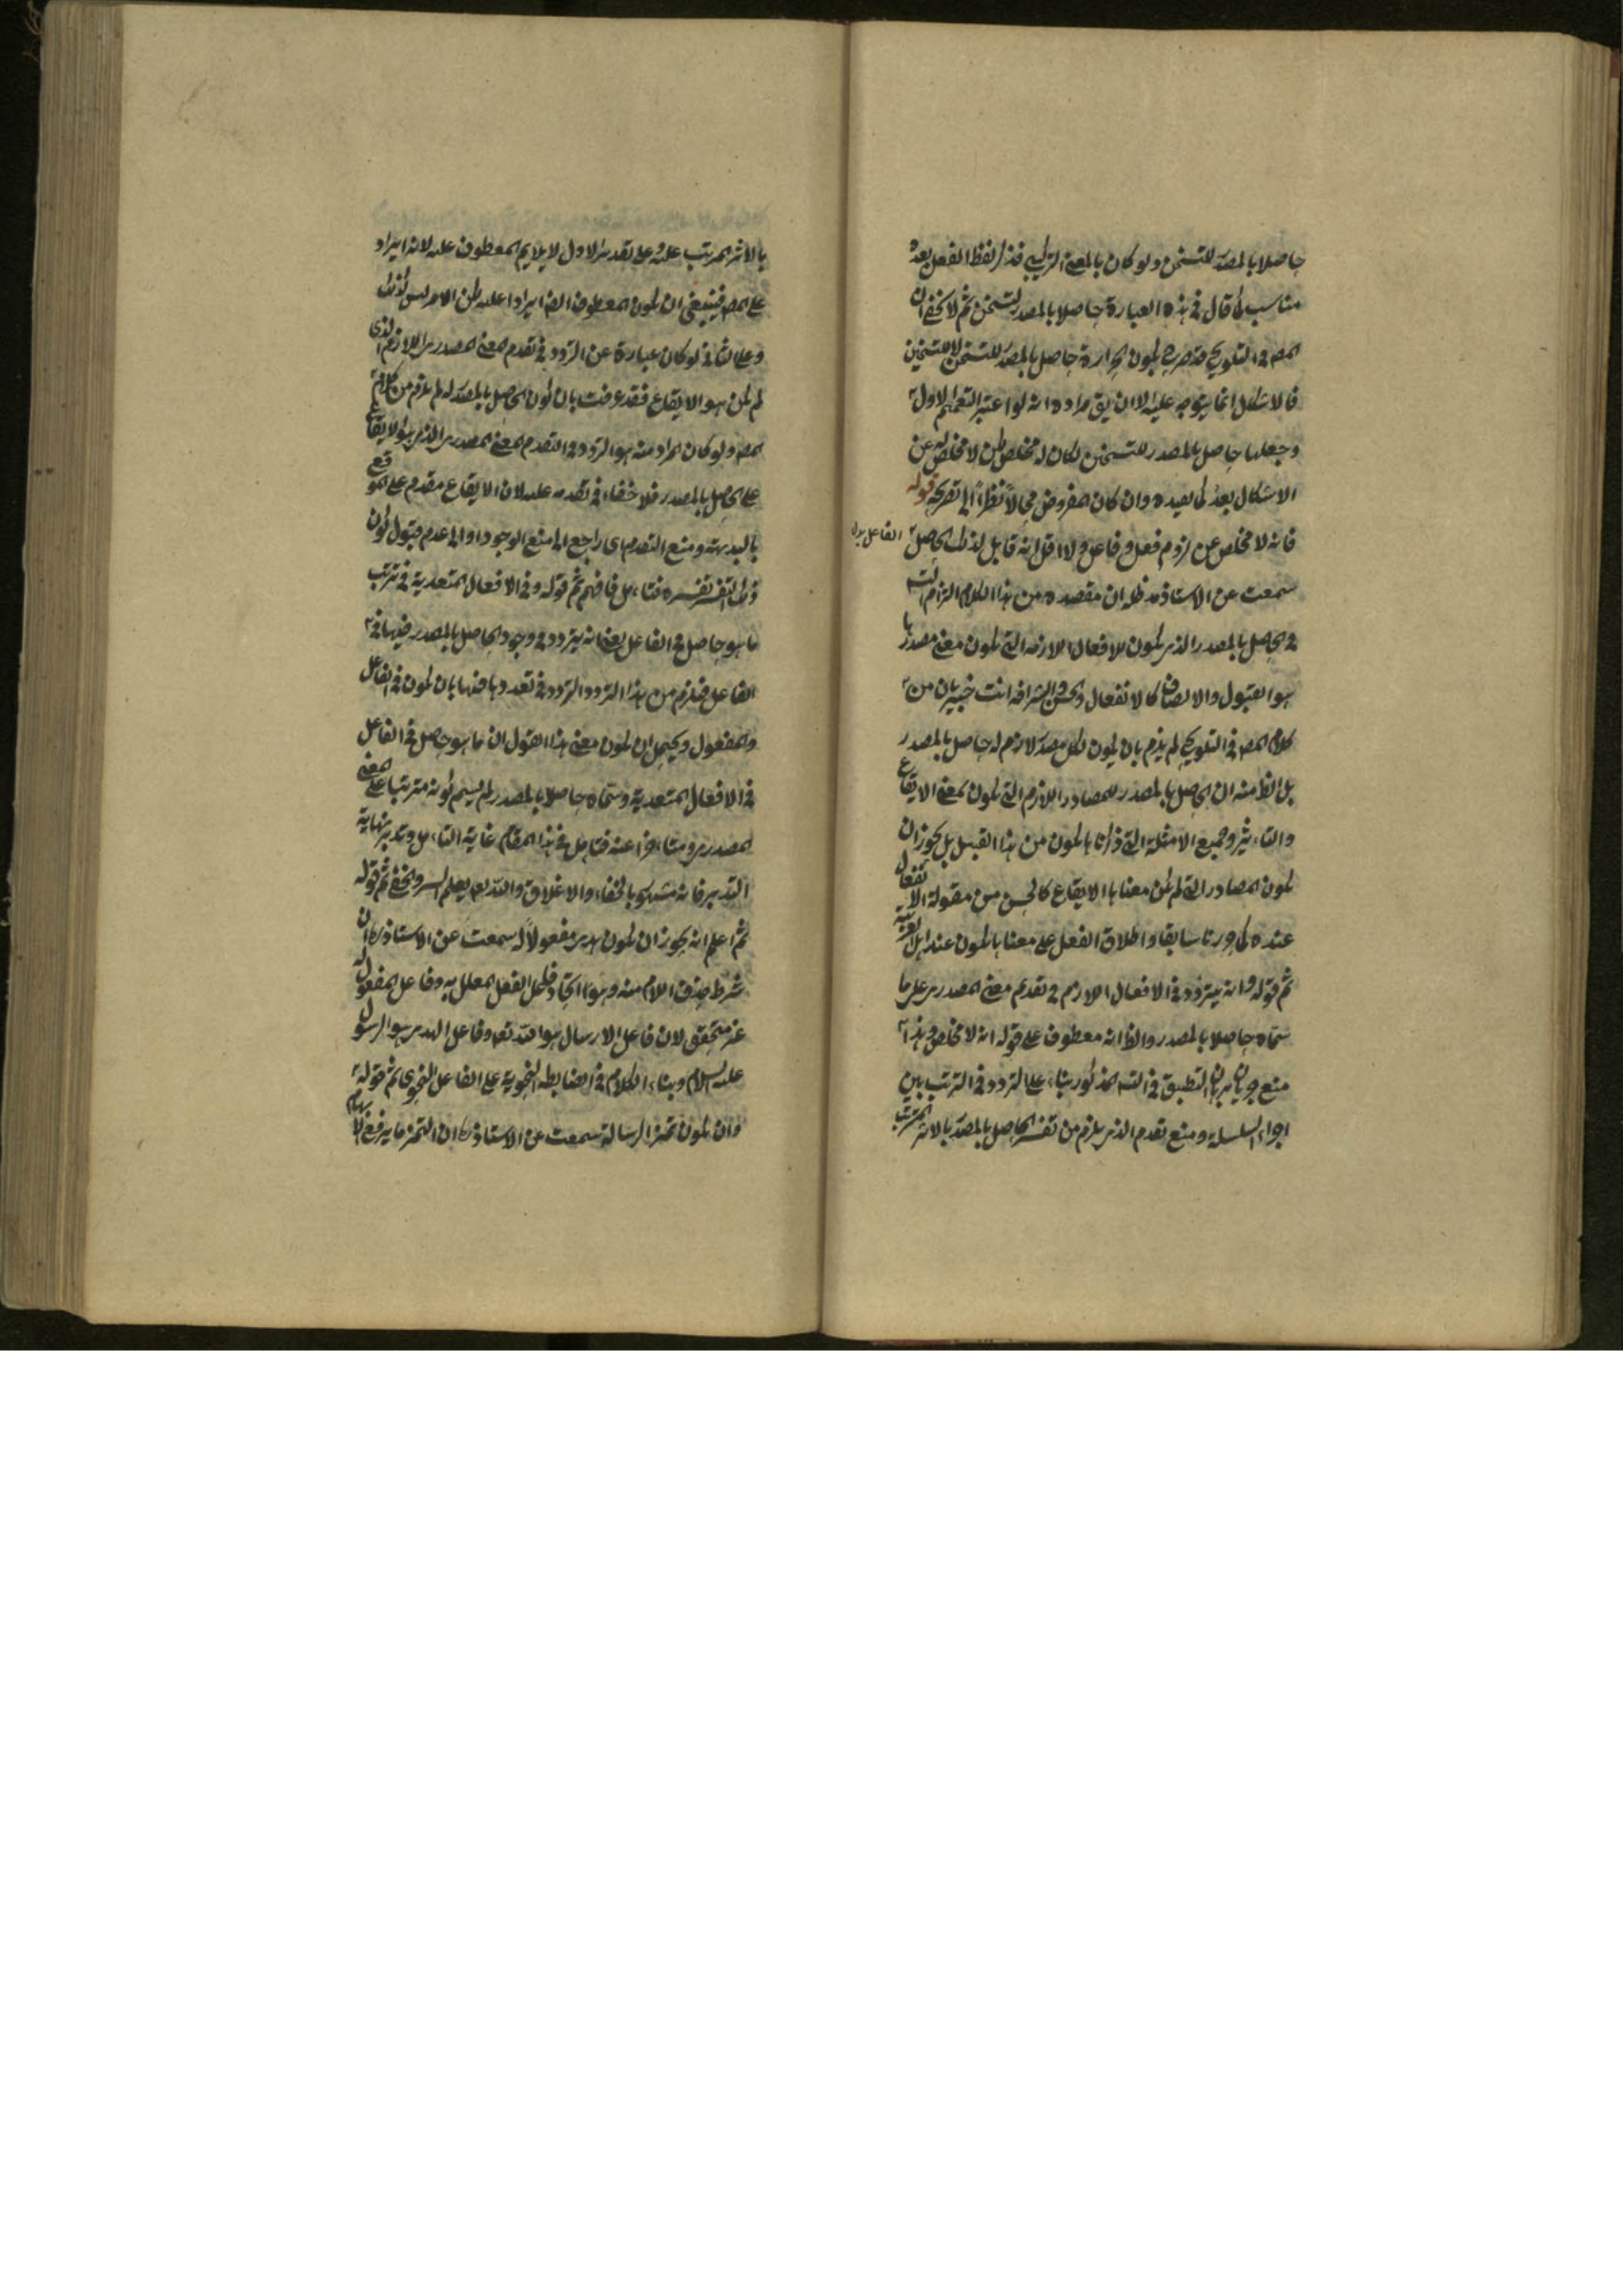 حاصلا بالمصدر للتسخن ولو كان بالمعنى التركيبي فذكر لفظ الفعل بعده
مناسب كما قال في هذه العبارة حاصلا بالمصدر لتسخن ثم لا يخفى ان
المص في التلويح قد صرح بكون الحرارة حاصل بالمصدر للتسخن لا للتسخين
فالاشكال انما يتوجه عليه الا ان يق مراده انه لو اعتبر التعليم الاول
وجعلها حاصل بالمصدر للتسخن لكان له مخلص لكن لا مخلص له عن
الاشكال بعد كما يفيده وان كان المفروض محالا نظرا الى تصريحه قوله
فانه لا مخلص عن لزوم فعل وفاعل ولا اقل انه قابل لذلك الحاصل
سمعت عن الاستاذ مد ظله ان مقصده من هذا الكلام التزام التسلسل
في الحاصل بالمصدر الذي يكون للافعال اللازمة التي يكون معنى مصدرها
هو القبول والاتصاف كالانفعال والحسن والشرافة انت خبير بان من
كلام المص في التلويح لم يلزم بان يكون لكل مصدر لازم له حاصل بالمصدر
بل الظ منه ان الحاصل بالمصدر للمصادر اللازم التي يكون بمعنى الايقاع
والتاثير وجميع الامثلة التي ذكرنا يكون من هذا القبيل بل يجوز ان
يكون المصادر التي لم يكن معناها الايقاع كالحسن من مقولة الانفعال
عنده كما جوزنا سابقا واطلاق الفعل على معناها يكون عند اهل العربية
ثم قوله وانه يتردد في الافعال اللازم في تقديم معنى المصدري على ما
سماه حاصلا بالمصدر والظ انه معطوف على قوله انه لا مخلص وهذا
منع جريان برهان التطبيق في التس المذكور بناء على التردد في الترتب بين
اجزاء السلسلة ومنع تقدم الذي يلزم من تفسير الحاصل بالمصدر بالاثر المترتب
بالاثر المرتب عليه وعلى تقدير الاول لا يلايم المعطوف عليه لانه ايراد
على المص فينبغي ان يكون المعطوف ايضا ايرادا عليه لكن الامر ليس كذلك
وعلى الثاني لو كان عبارة عن التردد في تقدم المعنى المصدري اللازم الذي
لم يكن هو الايقاع فقد عرفت بان يكون الحاصل بالمصدر له لم يلزم من كلام
المص ولو كان المراد منه هو التردد في التقدم المعنى المصدري الذي هو الايقاع
على الحاصل بالمصدر فلا خفاء في تقدمه عليه لان الايقاع مقدم على الموقع
بالبديهة ومنع التقدم اي راجع الى منع الوجود او الى عدم قبول كون
ذلك التفسير تفسيره فتامل فافهم ثم قوله وفي الافعال المتعدية في ترتب
ما هو حاصل في الفاعل يعني انه يتردد في وجود الحاصل بالمصدر فيها في
الفاعل فيلزم من هذا التردد التردد في تعددها فيها بان يكون في الفاعل
والمفعول ويحتمل ان يكون معنى هذا القول ان ما هو حاصل في الفاعل
في الافعال المتعدية وسماه حاصلا بالمصدر لم يسلم كونه مترتبا على المعنى
المصدري ومتاخرا عنه فتامل في هذا المقام غاية التامل وتدبر نهاية
التدبر فانه مشكو بالخفاء والاغلاق والله تع يعلم السر والخفي ثم قوله
ثم اعلم انه يجوز ان يكون هدى مفعولا له سمعت عن الاستاذ ره ان
شرط حذف اللام منه وهو اتحاد فاعل الفعل المعلل به وفاعل المفعول له
غير متحقق لان فاعل الارسال هو الله تع وفاعل الهدى هو الرسول
عليه السلام وبناء الكلام في الضابطه النحوية على الفاعل النحوي ثم قوله
وان يكون تميز الرسالة سمعت عن الاستاذ ره ان التميز ما يرفع الابهام